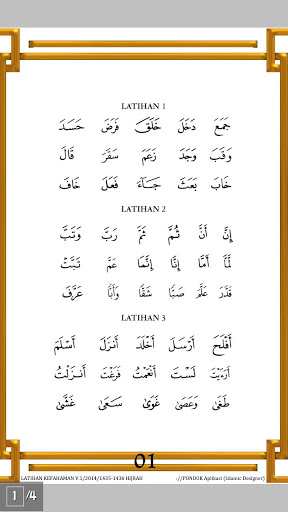 LATIHAN 1
جَمَعَ دَخَلَ خَلَقَ فَرَضَ حَسَدَ
وَقَبَ وَجَدَ زَعَمَ سَقَرَ قَالَ
خَابَ بَعَثَ جَاءَ فَعَلَ خَافَ
LATIHAN 2
إِنَّ أَنَّ ثُمَّ ثَمَّ رَبَّ وَتَبَّ
لَمَّا أَمَّا إِنَّا إِنَّمَا عَمَّ تَبَّتْ
قَدَّرَ عَلَّمَ صَبًّا شَقًّا وَأَبًّا عَرَّفَ
LATIHAN 3
أَفْلَحَ أَرْسَلَ أَخْلَدَ أَنْزَلَ أَسْلَمَ
أَرَءَيْتَ لَسْتَ أَنْعَمْتَ فَرَغْتَ أَنْزَلْتُ
طَغَىٰ وَعَصَىٰ غَوَىٰ سَعَىٰ غَشَّىٰ
01
LATIHAN KEFAHAMAN V.1/2014/1435-1436 HIJRAH ://PONDOK Aplikasi (Islamic Designer)
1 /4